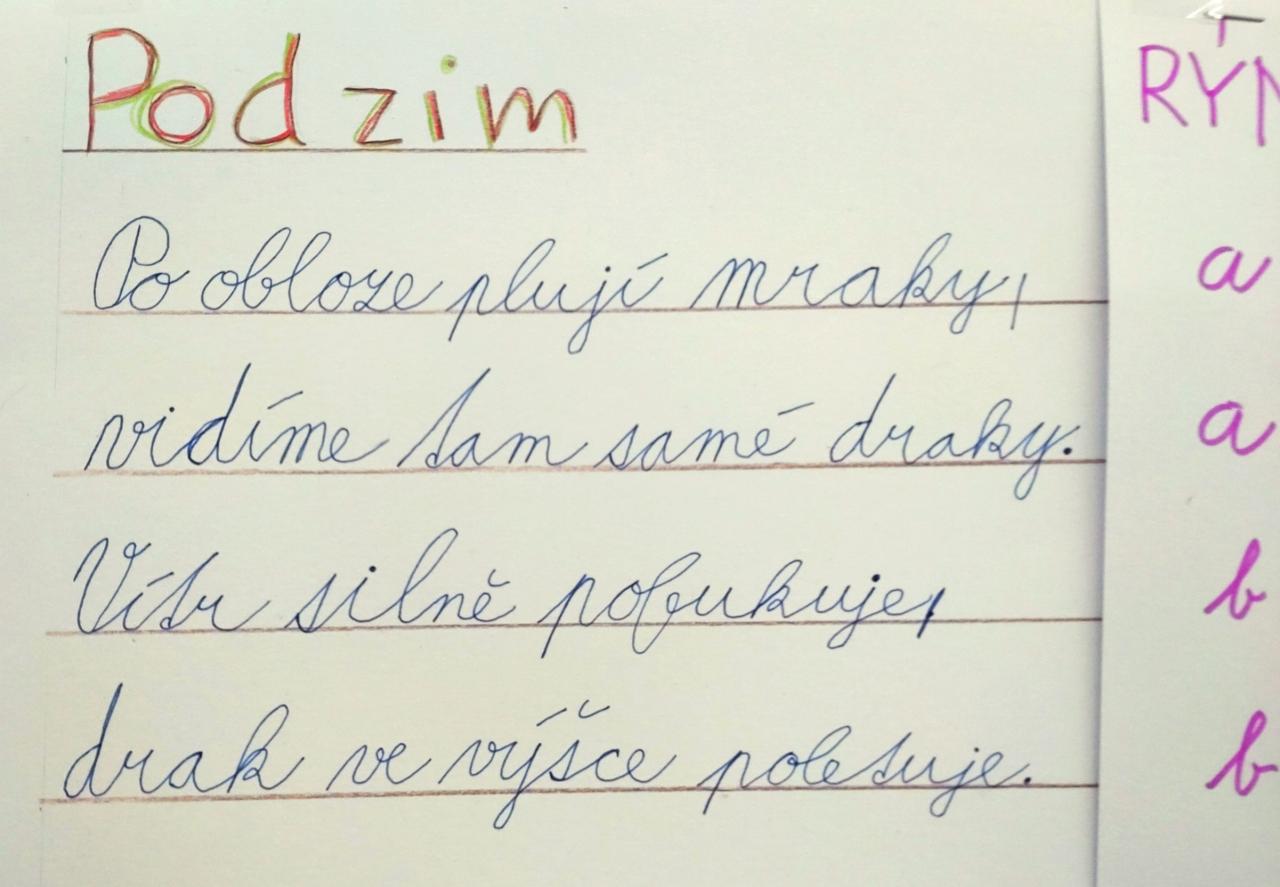 Podzim
Po obloze plují mraky,
vidíme tam samé draky.
Vítr silně pofukuje,
drak ve výšce poletuje.
RÝM
a
a
b
b